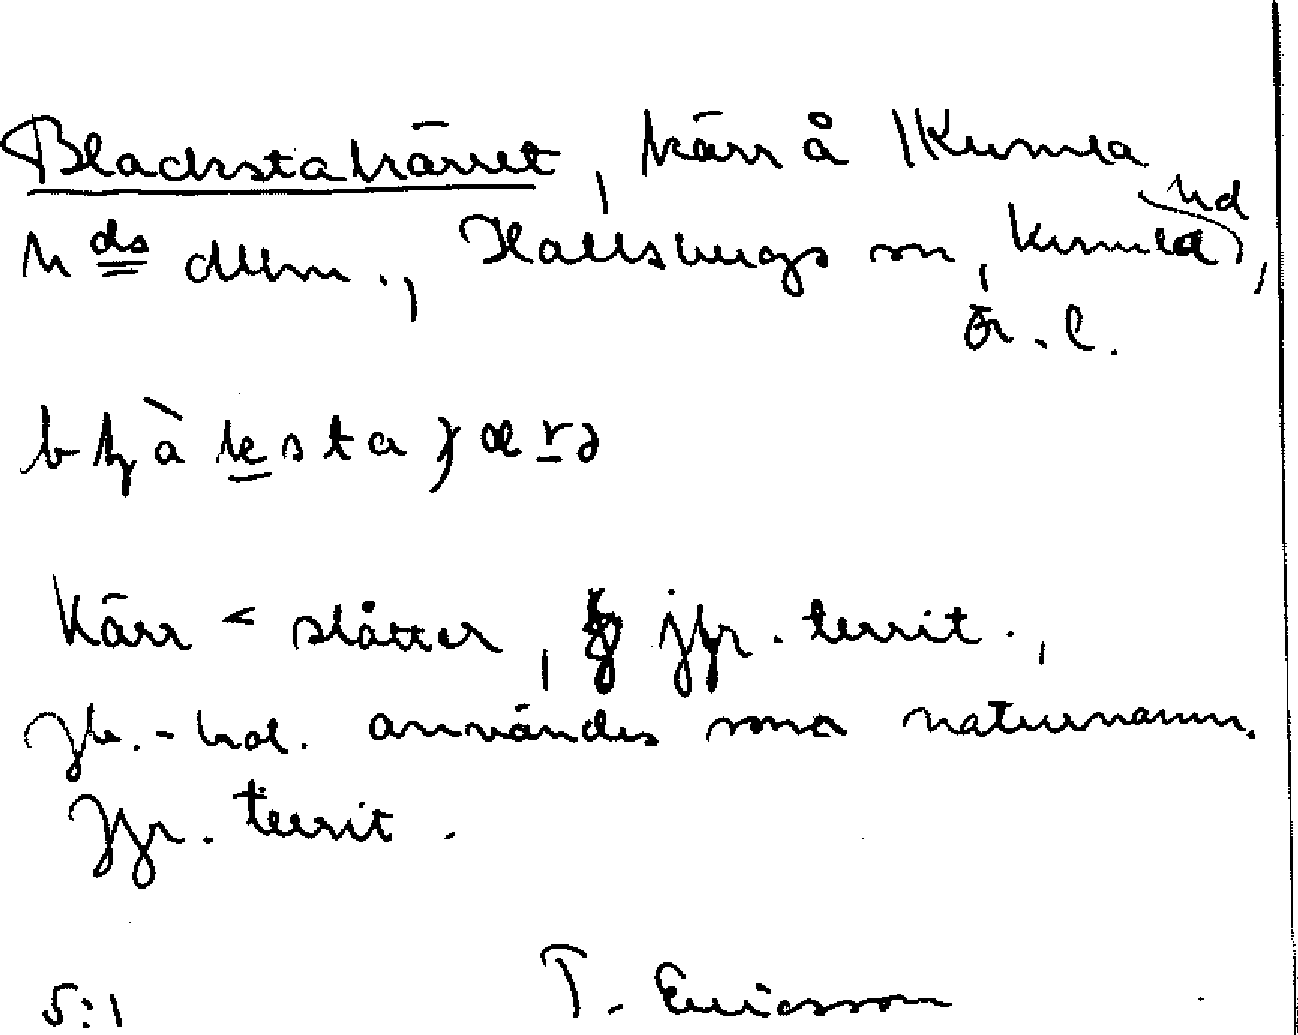 Blackstakärret, kärr å Kumla
hds allm., Hallsbergs sn, Kumla hd,
Ör. l.
Kärr < slåtter, jfr. territ.,
jb.-kol. användes som naturnamn.
Jfr. territ.
5:1 T. Ericsson